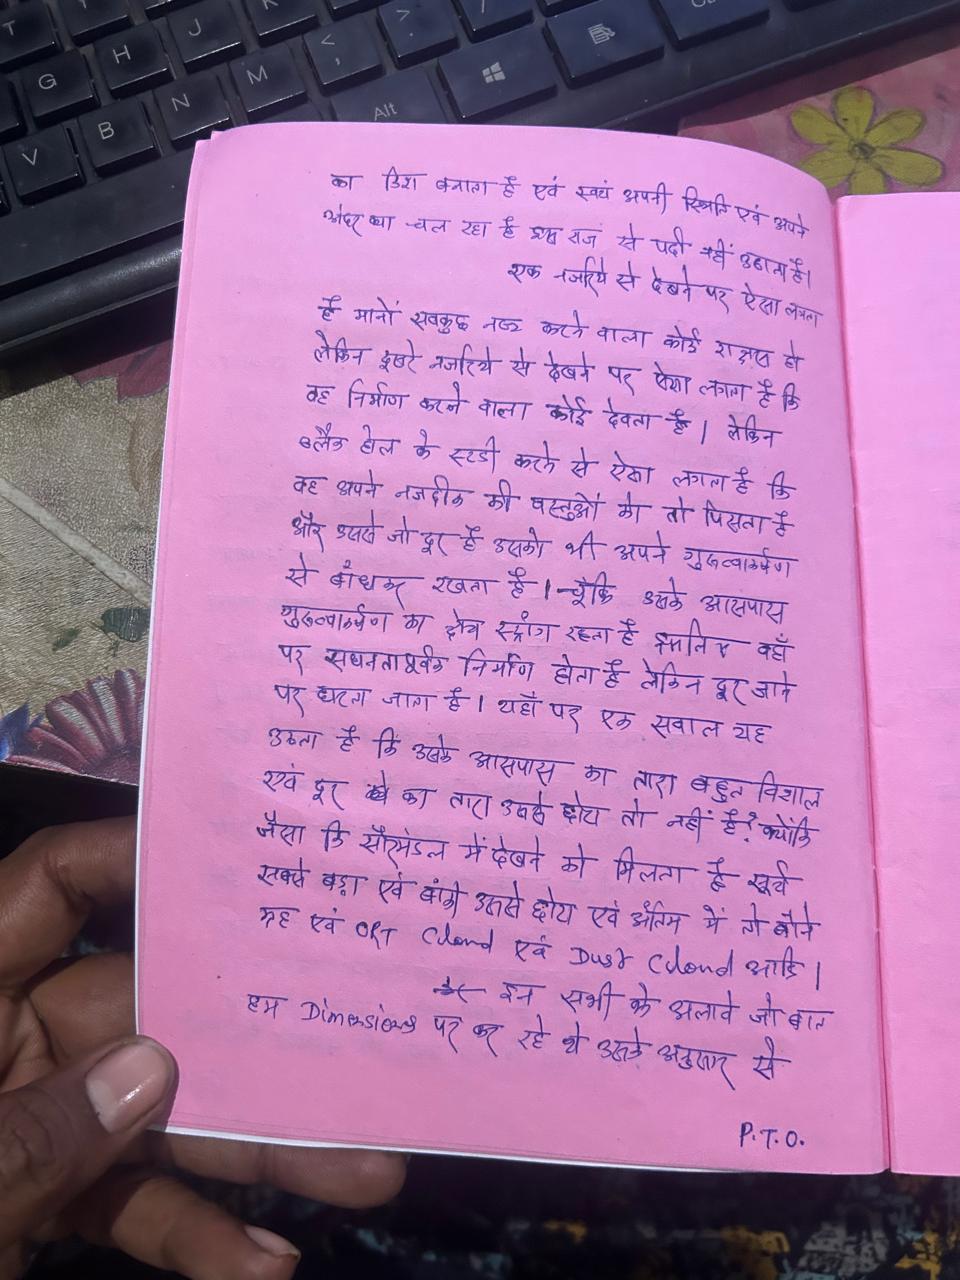 T
G
H
J
V
B
N
M
<
,
>
.
/
Alt
का डिश बनाता है एवं स्वयं अपनी स्थिति एवं अपने
अंदर क्या चल रहा है इस राज से पर्दा नहीं उठाता है।
एक नजरिये से देखने पर ऐसा लगता
है मानों सबकुछ नष्ट करने वाला कोई राक्षस हो
लेकिन दूसरे नजरिये से देखने पर ऐसा लगता है कि
वह निर्माण करने वाला कोई देवता है। लेकिन
ब्लैक होल के स्टडी करने से ऐसा लगता है कि
वह अपने नजदीक की वस्तुओं को तो पिसता है
और उससे जो दूर है उसको भी अपने गुरुत्वाकर्षण
से बाँधकर रखता है। चूँकि उसके आसपास
गुरुत्वाकर्षण का क्षेत्र स्ट्रांग रहता है इसलिए वहाँ
पर सघनतापूर्वक निर्माण होता है लेकिन दूर जाने
पर घटता जाता है। यहाँ पर एक सवाल यह
उठता है कि उसके आसपास का तारा बहुत विशाल
एवं दूर का तारा उससे छोटा तो नहीं है? क्योंकि
जैसा कि सौरमंडल में देखने को मिलता है सूर्य
सबसे बड़ा एवं बांकी उससे छोटा एवं अंतिम में तो बौने
ग्रह एवं ORT Cloud एवं Dust Cloud आदि।
इन सभी के अलावे जो बात
हम Dimensions पर कर रहे थे उसके अनुसार से
P.T.O.